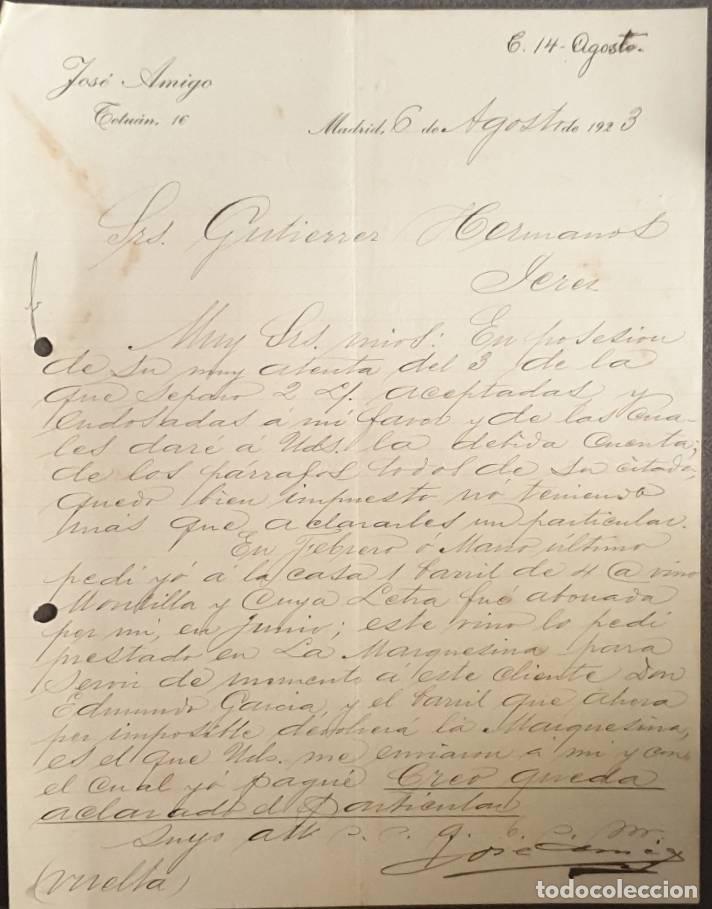 C. 14 - Agosto.
José Amigo
Tetuán, 16
Madrid, 6 de Agosto de 1923
Srs. Gutierrez Hermanos
Jerez
Muy Srs. mios: En posesion
de su muy atenta del 3 de la
que separo 2 L/. aceptadas y
endosadas á mi favor y de las cua-
les daré á Uds. la debida cuenta;
de los párrafos todos de su citada,
quedo bien impuesto nó teniendo
mas que aclararles un particular.
En Febrero ó Marzo último
pedi yó á la casa 1 barril de 4 @ vino
Montilla y cuya Letra fué abonada
por mi, en Junio; este vino lo pedi
prestado en La Marquesina para
servir de momento á este cliente Don
Edmundo Garcia, y el barril que ahora
por imposible devolverá la Marquesina,
es el que Uds. me enviaron a mi y con
el cual yó pagué Creo queda
aclarado el particular
Suyo att S. S. q. e. s. m.
José Amigo
(vuelta)
todocoleccion